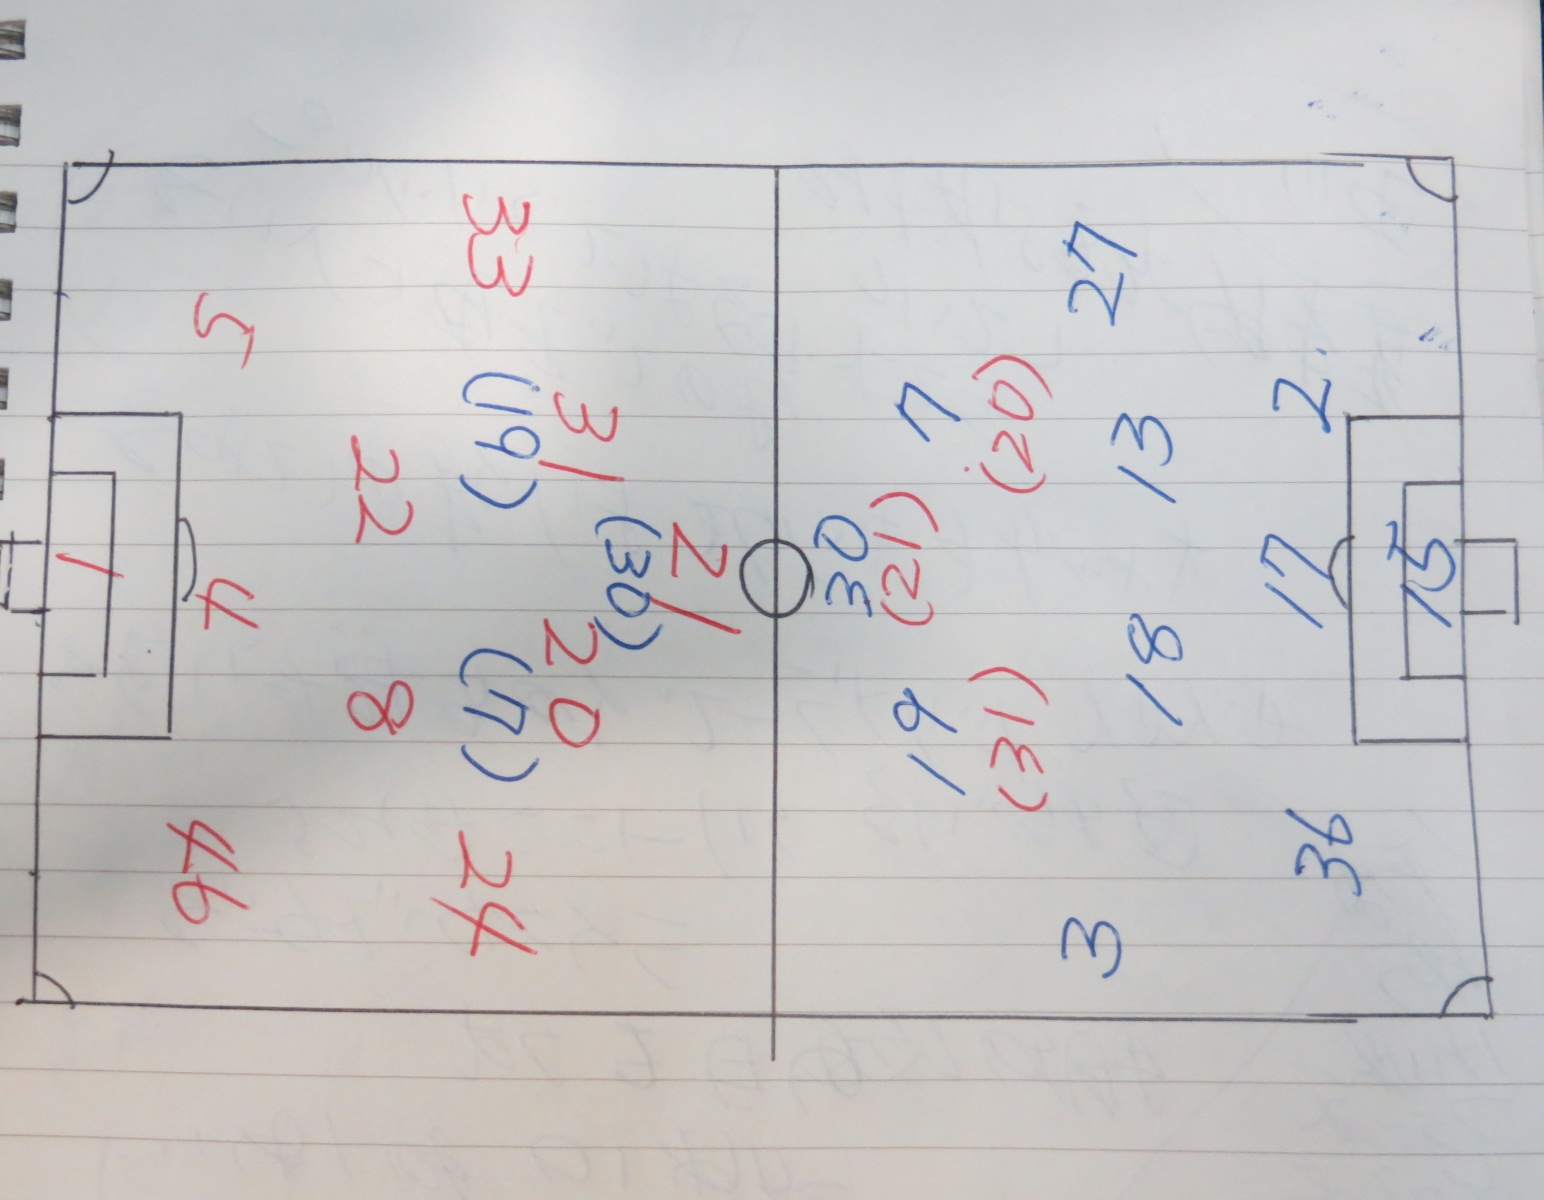 21
(30)
31 20
(19) (7)
33 24
22 8
5 4 46
1
30
(21)
19 7
(31) (20)
3 27
18 13
36 17 2
15